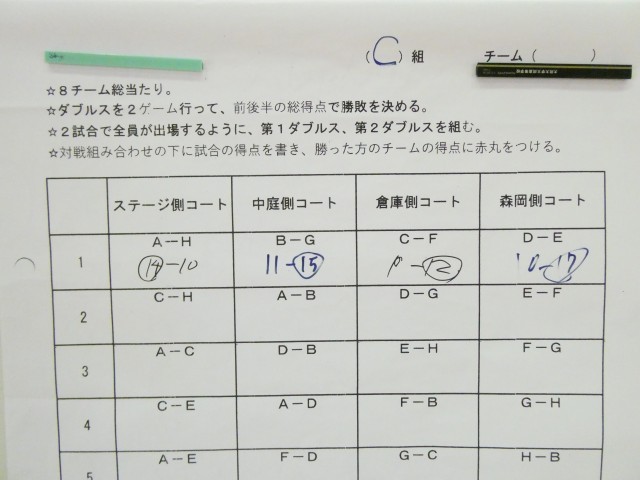 (C)組 チーム( )
☆8チーム総当たり。
☆ダブルスを2ゲーム行って、前後半の総得点で勝敗を決める。
☆2試合で全員が出場するように、第1ダブルス、第2ダブルスを組む。
☆対戦組み合わせの下に試合の得点を書き、勝った方のチームの得点に赤丸をつける。
ステージ側コート 中庭側コート 倉庫側コート 森岡側コート
A－H B－G C－F D－E
1 14-10 11-15 -12 10-17
C－H A－B D－G E－F
2
A－C D－B E－H F－G
3
C－E A－D F－B G－H
4
A－E F－D G－C H－B
5